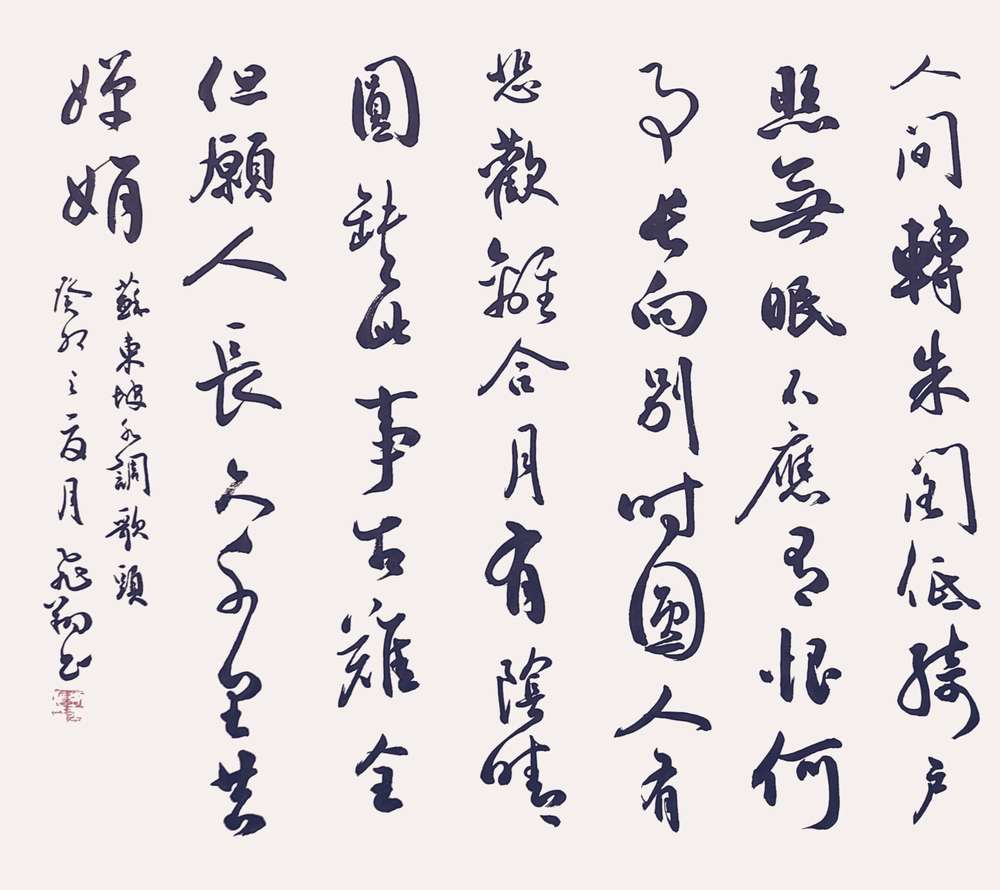 人間轉朱閣低綺戶
照無眠不應有恨何
事長向別時圓人有
悲歡離合月有陰晴
圓缺此事古難全
但願人長久千里共
嬋娟
蘇東坡水調歌頭
癸卯之夏月飛翔書